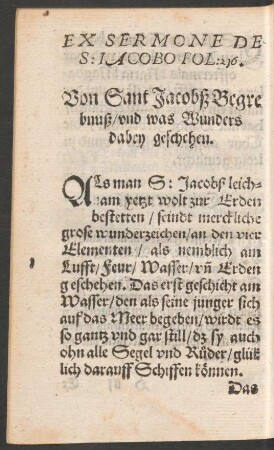 EX SERMONE DE
S: IACOBO FOL: 236.
Von Sant Jacobß Begre
bnuß/vnd was Wunders
dabey geschehen.
Als man S: Jacobs leich-
nam yetzt wolt zur Erden
bestetten / seindt merckliche
grose wunderzeichen/an den vier
Elementen / als nemblich am
Lufft/Feur/Wasser/vn̄ Erden
geschehen. Das erst geschicht am
Wasser/den als seine junger sich
auf das Meer begeben/wirdt es
so gantz vnd gar still/dz sy auch
ohn alle Segel vnd Rüder/glük
lich darauff Schiffen können.
Das